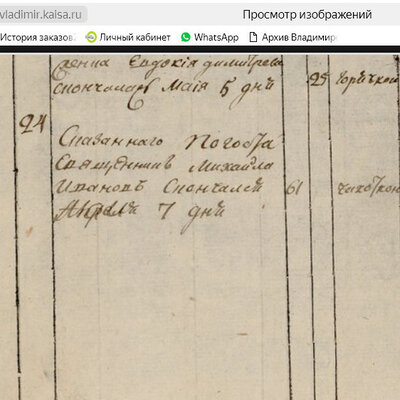 vladimir.kaisa.ru
Просмотр изображений
История заказов
Личный кабинет
WhatsApp
Архив Владимир
Евдокія димитрева
скончалась Маія 5 дня 25 горячкой
24
Сказаннаго Погоста
Священникъ Михайла
Ивановъ Скончался 61 чахоткою
Апреля 7 дня